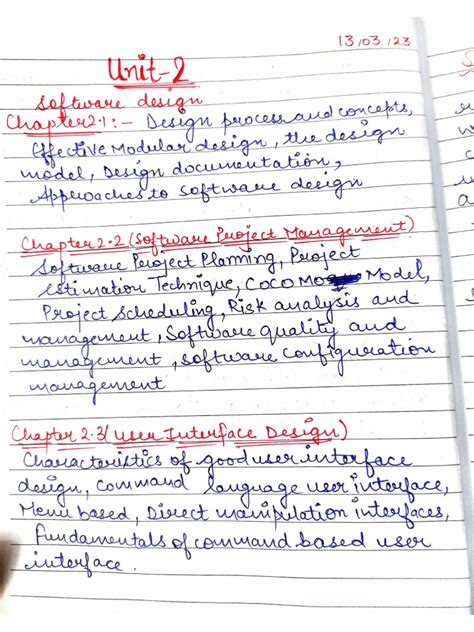 13/03/23
Unit-2
Software design
Chapter2.1:- Design process and concepts,
Effective Modular design, the design
model, Design documentation,
Approaches to software design
Chapter 2.2 (Software Project Management)
Software Project Planning, Project
estimation Technique, COCOMO Model,
Project scheduling, Risk analysis and
management, Software quality and
management, software configuration
management
Chapter 2.3 (User Interface Design)
Characteristics of good user interface
design, command language user interface,
Menu based, Direct manipulation interfaces,
Fundamentals of command based user
interface.